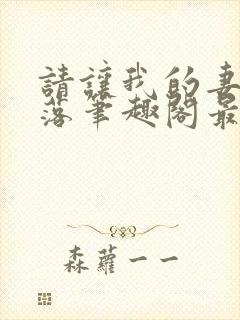 請讓我的妻
落筆趣閣最
森蘿一一